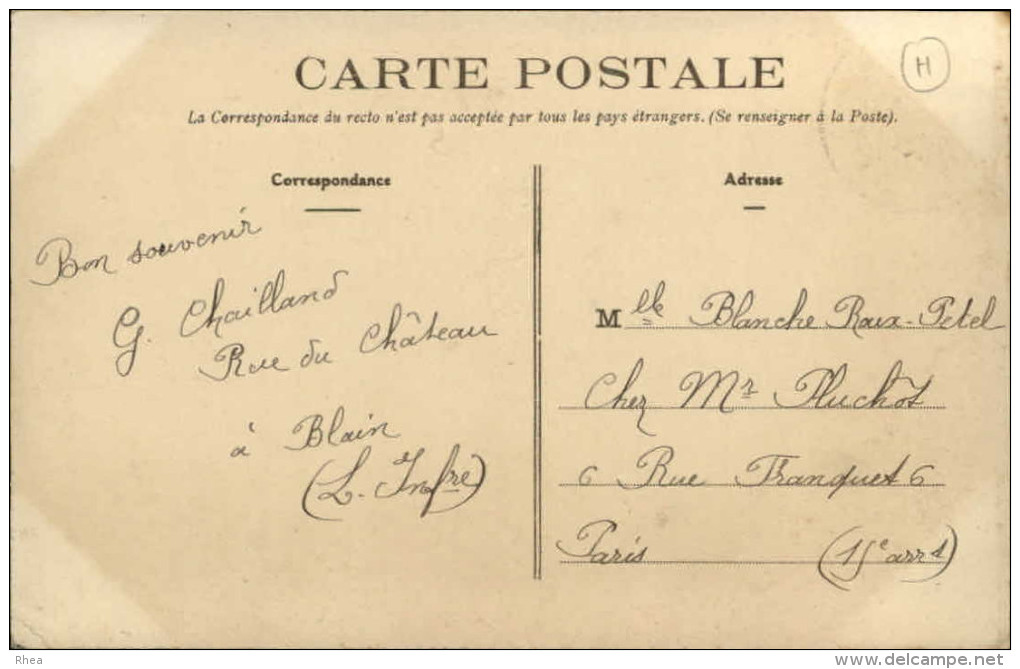 CARTE POSTALE
H
La Correspondance du recto n'est pas acceptée par tous les pays étrangers. (Se renseigner à la Poste).
Correspondance
Bon souvenir
G. Chailland
Rue du Château
à Blain
(L. Infre)
Adresse
Mlle Blanche Raux-Petel
Chez Mr Pluchot
6 Rue Franquet 6
Paris (15e arrt)
Rhea
www.delcampe.net